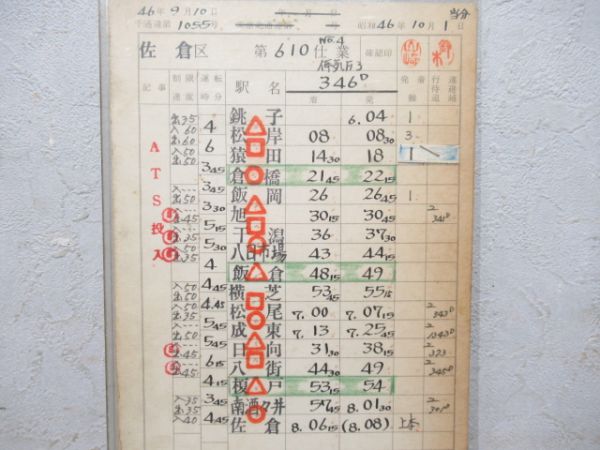 46年9月10日
千運達第1055号
昭和46年10月1日
当分
佐倉区 第610仕業 No.4 確認印
鈴木
記事 制限速度 運転時分 駅名 346D 着 発 発着動 行待退 運
ATS投入
銚子 6.04 1
出35 4
松岸 08 08 30 3
入60 出60 6
猿田 14 30 18 1
入50 出50 3 45
倉橋 21 45 22 15
3 45
飯岡 26 26 45 1
入 3 30
旭 30 15 30 45 2 341D
出45 5 15
干潟 36 37 30
出35 5 30
八日市場 43 44 15
入50 出45 4
飯倉 48 15 49
4 45
横芝 53 45 55 15
入50 出50 4.45
松尾 7.00 7.07 15 2 343D
入50 出35 5 45
成東 7.13 7.25 45 2 1343D
入50 出50 5 45
日向 31 30 38 15 2 323
出45 6 15
八街 44 30 49 2 345D
出45 4 15
榎戸 53 15 54
3 45
南酒々井 57 45 8.01 30 2
入35 出35 4 45
佐倉 8.06 15 (8.08) 上本
入40